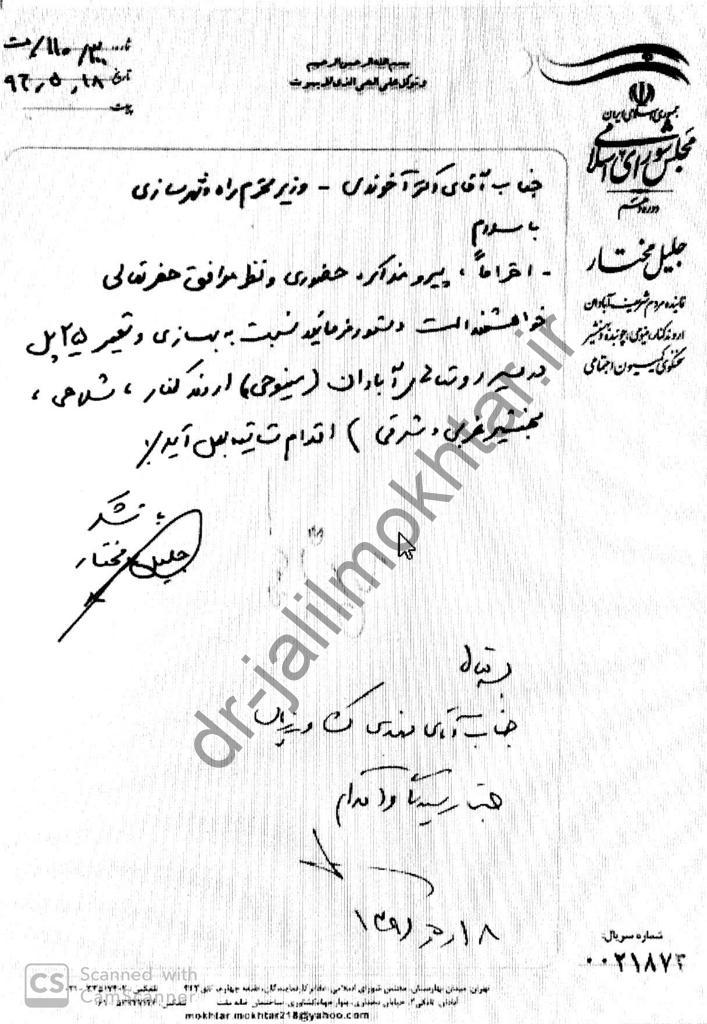 بسم الله الرحمن الرحیم
و توکل علی الحی الذی لا یموت
شماره ۱۱۰/۳۰۰
تاریخ ۹۲،۵،۱۸
پیوست
جمهوری اسلامی ایران
مجلس شورای اسلامی
دوره نهم
جلیل مختار
نماینده مردم شریف آبادان
اروندکنار، مینوحی، چوئبده و بهمنشیر
سخنگوی کمیسیون اجتماعی
جناب آقای دکتر آخوندی - وزیر محترم راه و شهرسازی
با سلام
- احتراماً، پیرو مذاکره حضوری و نظر موافق حضرتعالی
خواهشمند است دستور فرمائید نسبت به بهسازی و تعمیر ۲۵ پل
در مسیر روستاهای آبادان (مینوحی، اروندکنار، شلاحی،
بهمنشیر غربی و شرقی) اقدام شایسته بعمل آید./
با تشکر
جلیل مختار
بسمه تعالی
جناب آقای مهندس کشاورزیان
جهت رسیدگی و اقدام
۱۸
شماره سریال:
۰۰۲۱۸۷۳
تهران، میدان بهارستان، مجلس شورای اسلامی، دفاتر کار نمایندگان، طبقه چهارم، اتاق ۴۱۲
mokhtar.mokhtar218@yahoo.com
dr-jalilmokhtar.ir
CS
Scanned with
CamScanner